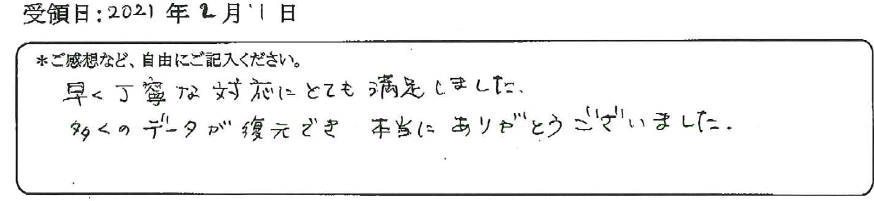 受領日:2021年2月11日
*ご感想など、自由にご記入ください。
早く丁寧な対応にとても満足しました。
多くのデータが復元でき 本当にありがとうございました。